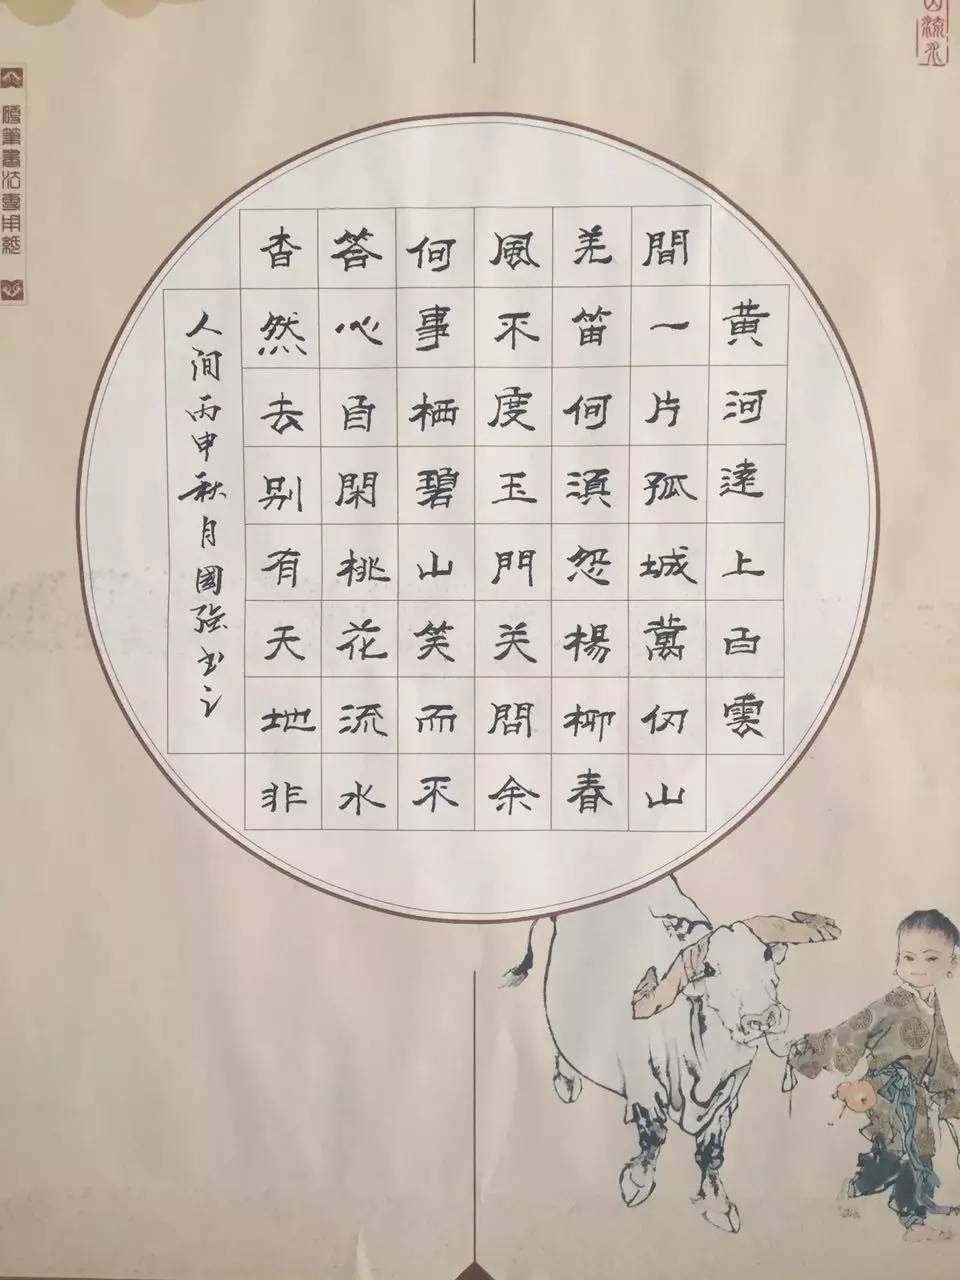 黄河逺上白雲
間一片孤城萬仞山
羌笛何湏怨楊柳春
風不度玉門关問余
何事栖碧山笑而不
答心自閑桃花流水
杳然去别有天地非
人间丙申秋月國强书之
硬筆書法專用紙